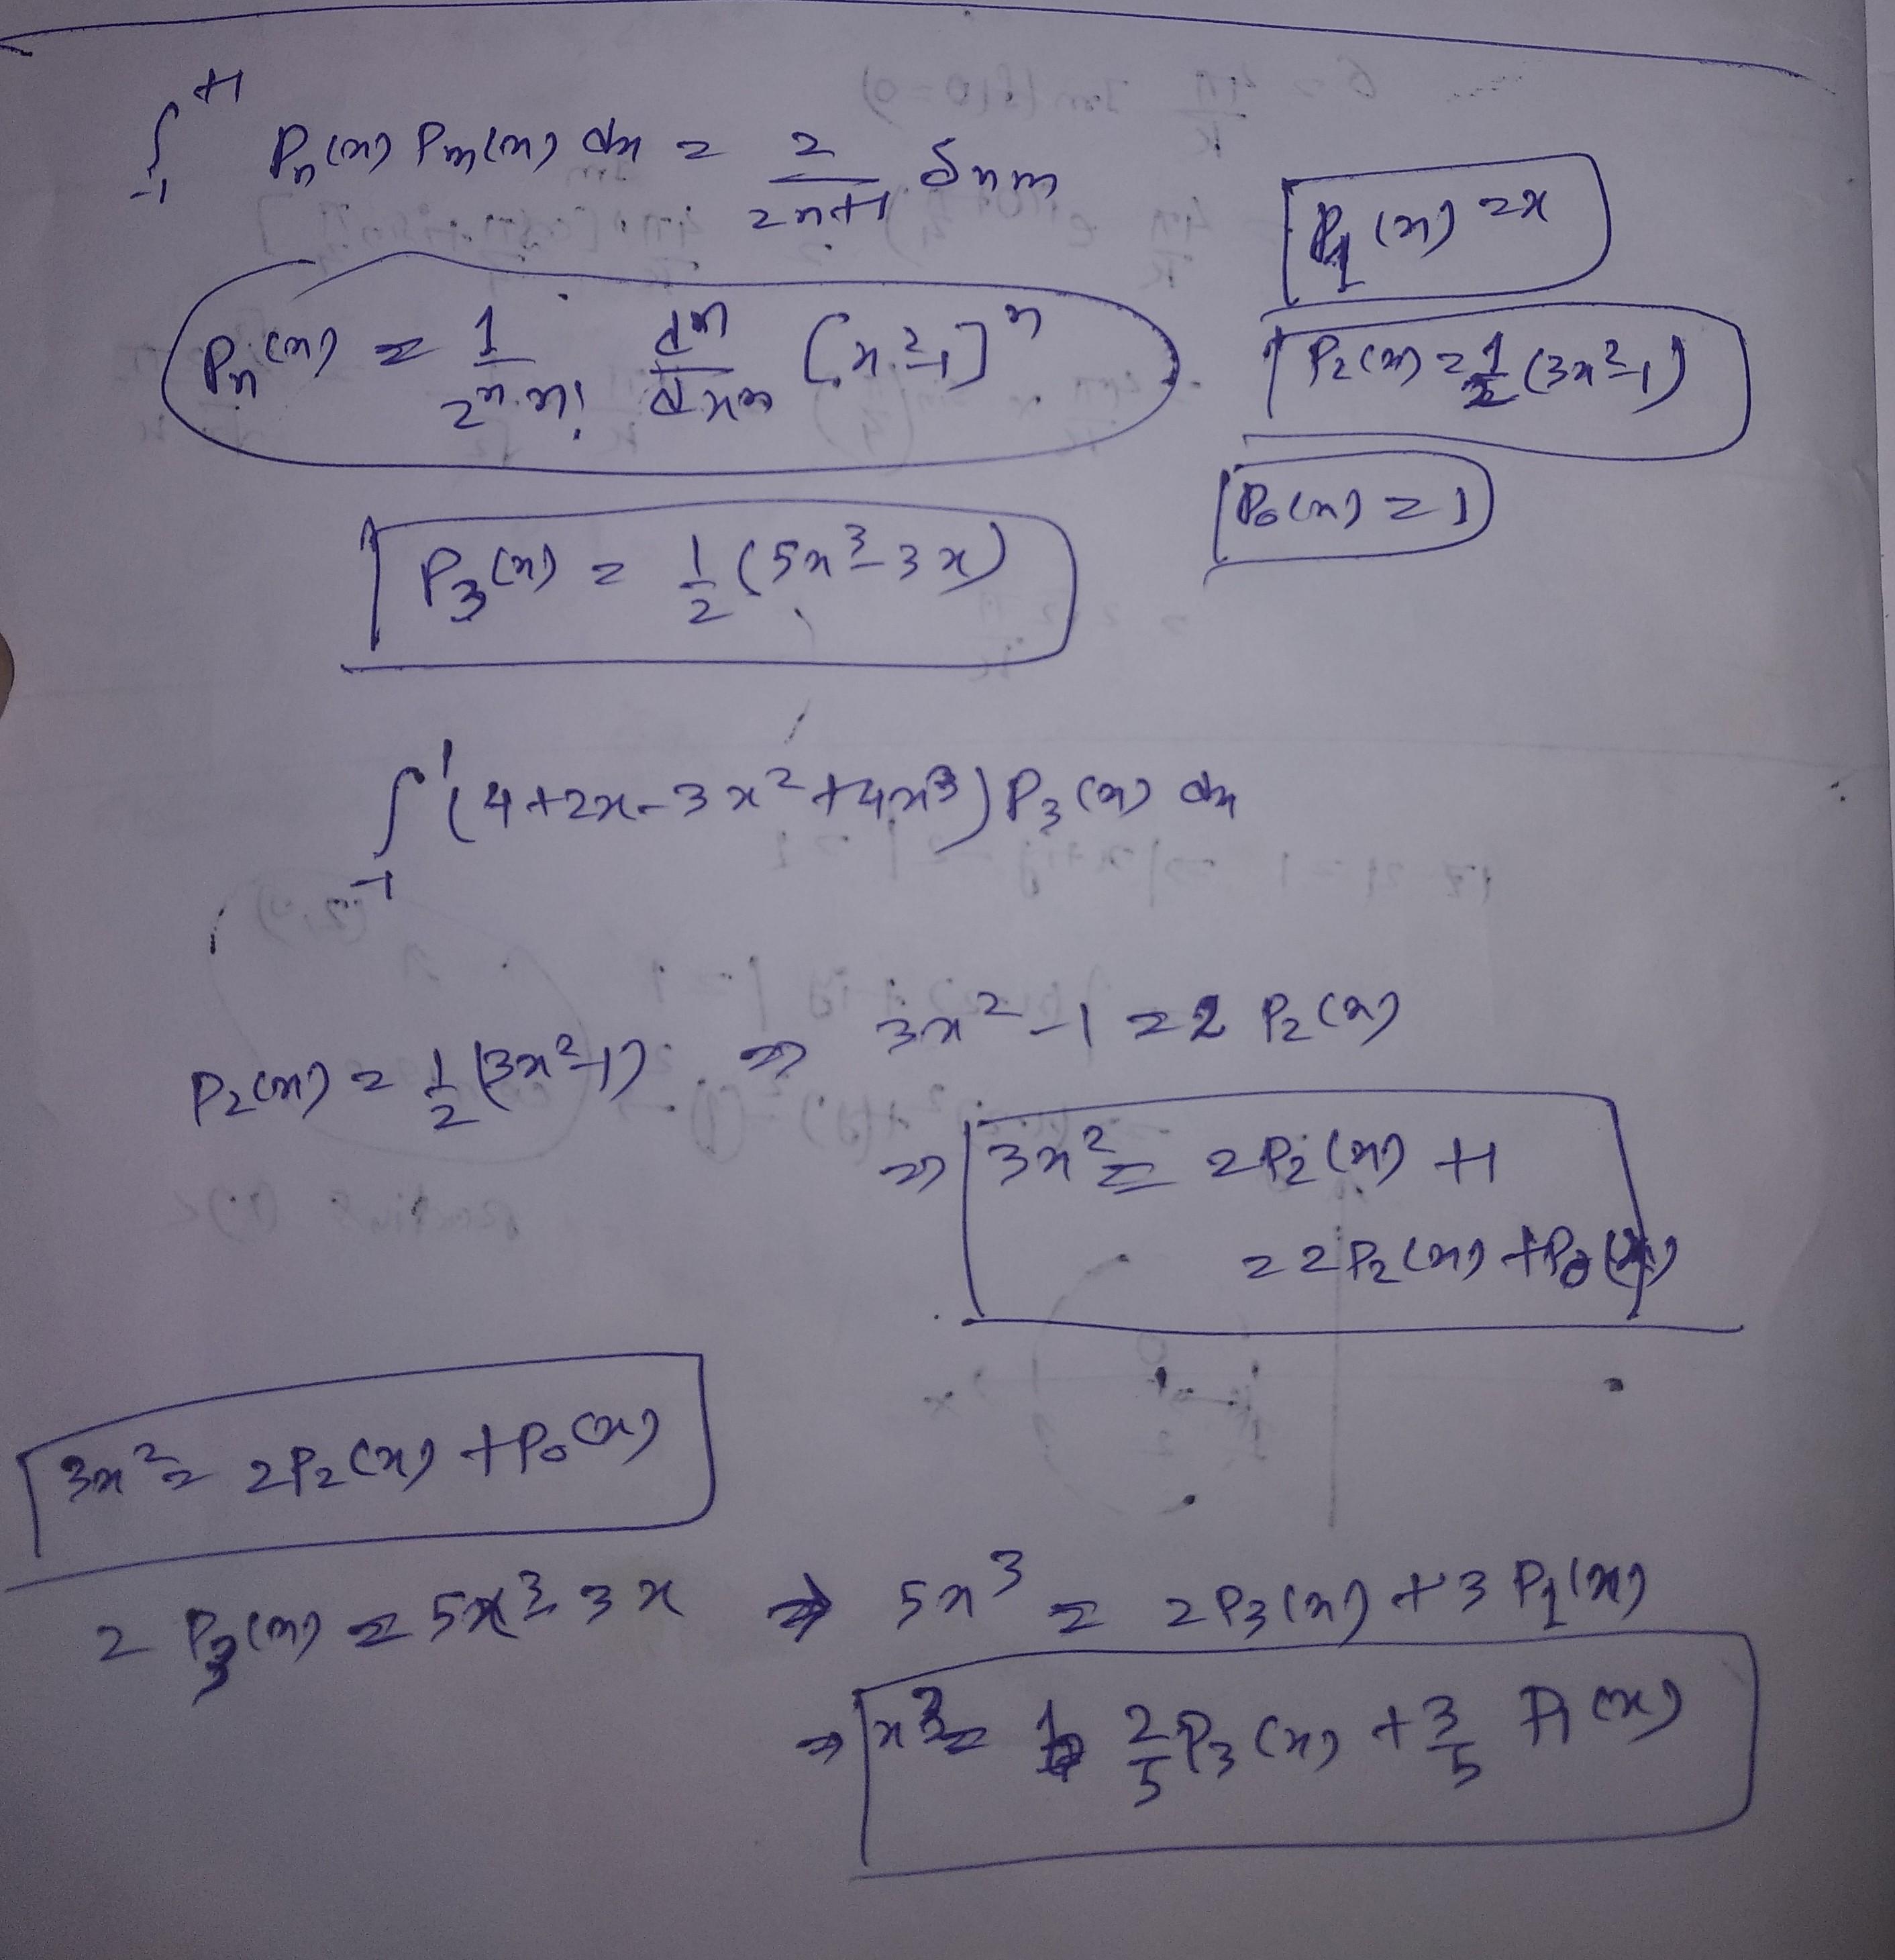 ∫₋₁⁺¹ Pₙ(x) Pₘ(x) dx = 2/(2n+1) δₙₘ
P₁(x) = x
Pₙ(x) = 1/(2ⁿ·n!) dⁿ/dxⁿ [x²-1]ⁿ
P₂(x) = 1/2 (3x²-1)
P₀(x) = 1
P₃(x) = 1/2 (5x³-3x)
∫₋₁¹ (4+2x-3x²+4x³) P₃(x) dx
P₂(x) = 1/2 (3x²-1) ⇒ 3x²-1 = 2 P₂(x)
⇒ 3x² = 2P₂(x) +1
= 2P₂(x) + P₀(x)
3x² = 2P₂(x) + P₀(x)
2 P₃(x) = 5x³-3x ⇒ 5x³ = 2P₃(x) + 3 P₁(x)
⇒ x³ = 2/5 P₃(x) + 3/5 P₁(x)